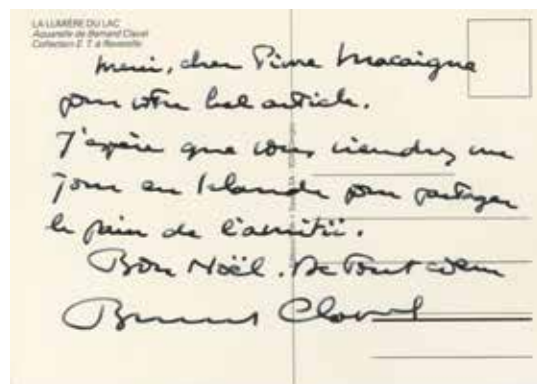 LA LUMIÈRE DU LAC
Aquarelle de Bernard Clavel
Collection E. T. à Reverolle
Merci, cher Pierre Macaigne
pour votre bel article.
J'espère que vous viendrez un
jour en Irlande pour partager
le pain de l'amitié.
Bon Noël. De tout cœur
Bernard Clavel